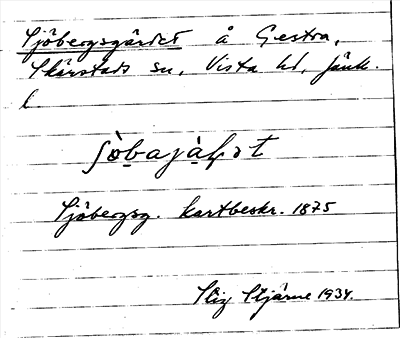 Sjöbergsgärdet å Gestra,
Skärstads sn, Vista hd, Jönk.
l
ʃò̱bajà̱ḥət
Sjöbergsg. kartbeskr. 1875
Stig Stjärne 1934.